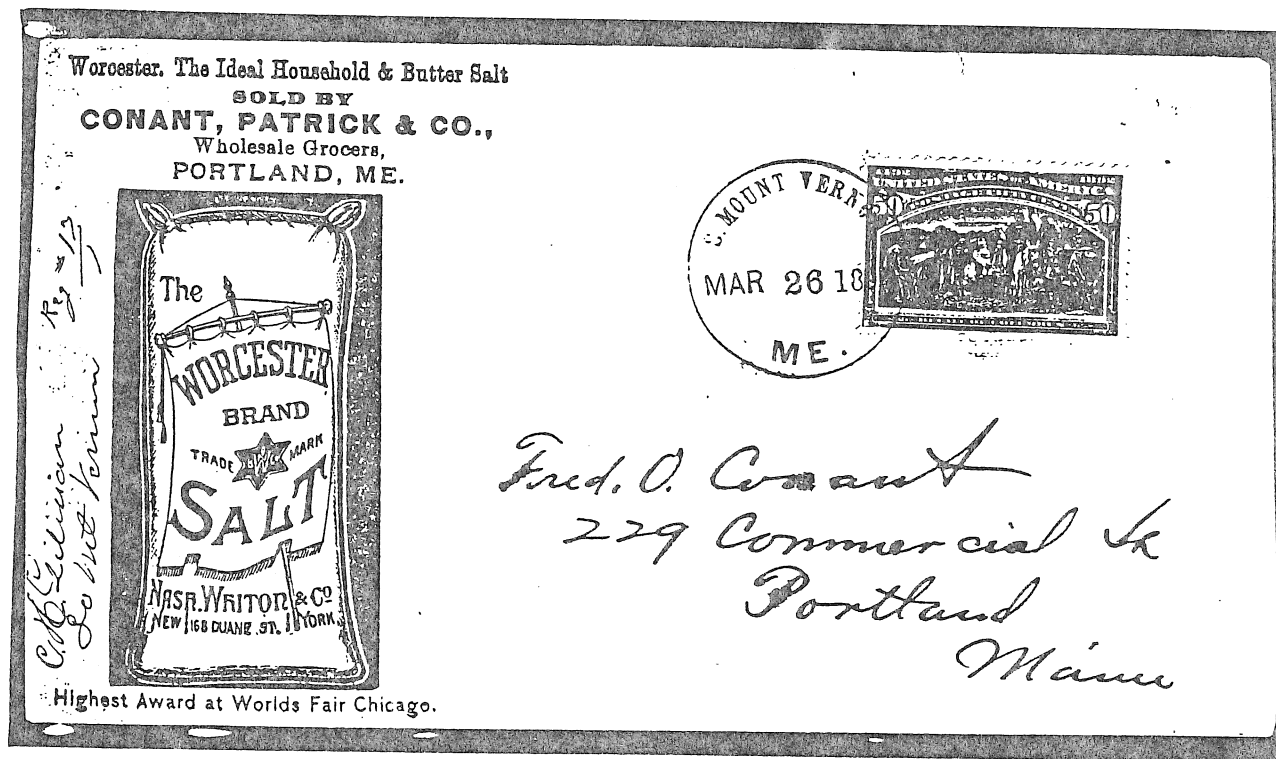 Worcester. The Ideal Household & Butter Salt
SOLD BY
CONANT, PATRICK & CO.,
Wholesale Grocers,
PORTLAND, ME.
The
WORCESTER
BRAND
TRADE MARK
SALT
NASH, WHITON & CO
NEW 168 DUANE ST. YORK.
Highest Award at Worlds Fair Chicago.
Reg # 13
So Mt Vernon
MOUNT VERN
MAR 26 18
ME.
UNITED STATES OF AMERICA
50 50
Fred. O. Conant
229 Commercial St
Portland
Maine